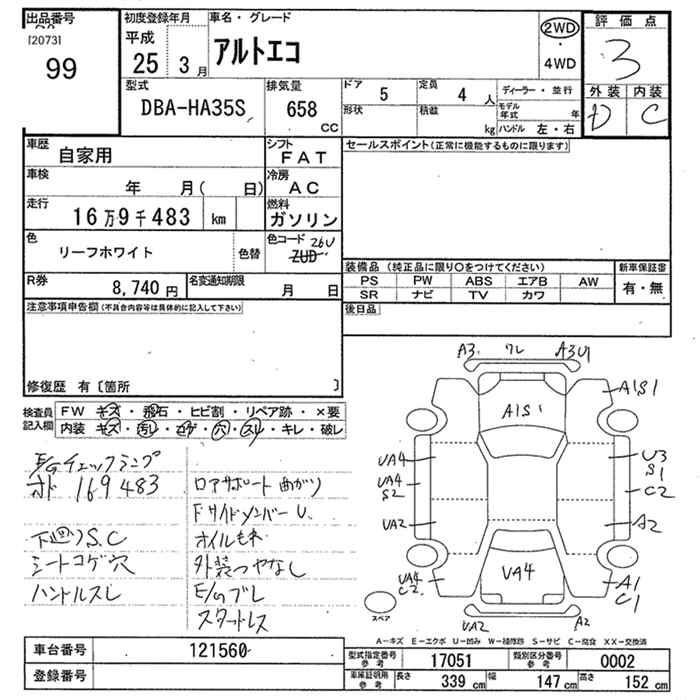 出品番号
[2073]
99
初度登録年月
平成
25 3月
車名・グレード
アルトエコ
2WD
・
4WD
評価点
3
外装 内装
D C
型式
DBA-HA35S
排気量
658
cc
ドア
5
定員
4 人
形状
積載
kg
ディーラー・並行
モデル年式 年
ハンドル 左・右
車歴
自家用
シフト
FAT
セールスポイント(正常に機能するものに限ります)
車検
年 月( 日)
冷房
AC
走行
16万9千483 km
燃料
ガソリン
色
リーフホワイト
色替
色コード 26U
ZUD
R券
8,740 円
名変通知期限
月 日
装備品 (純正品に限り○をつけてください)
PS PW ABS エアB AW
SR ナビ TV カワ
新車保証書
有・無
注意事項申告欄(不具合内容等は具体的に記入して下さい)
後日品
修復歴 有〔箇所 〕
検査員記入欄
FW キズ・飛石・ヒビ割・リペア跡・×要
内装 キズ・汚レ・コゲ・穴・スレ・キレ・破レ
E/Gチェックランプ
オド 169483
下廻りS.C
シートコゲ穴
ハンドルスレ
ロアサポート曲がり
Fサイドメンバー U.
オイルもれ
外装つやなし
E/Gブレ
スタートレス
A3 ワレ A3U1
A1S1
A1S1
UA4
UA4
S2
UA2
UA4
C2
U3
S1
C2
A2
A1
C1
UA4
スペア
UA2 A2
A-キズ E-エクボ U-凹み W-補修跡 S-サビ C-腐食 XX-交換済
車台番号
121560
登録番号
型式指定番号
参考
17051
類別区分番号
参考
0002
車庫証明用
参考
長さ
339 cm
幅
147 cm
高さ
152 cm